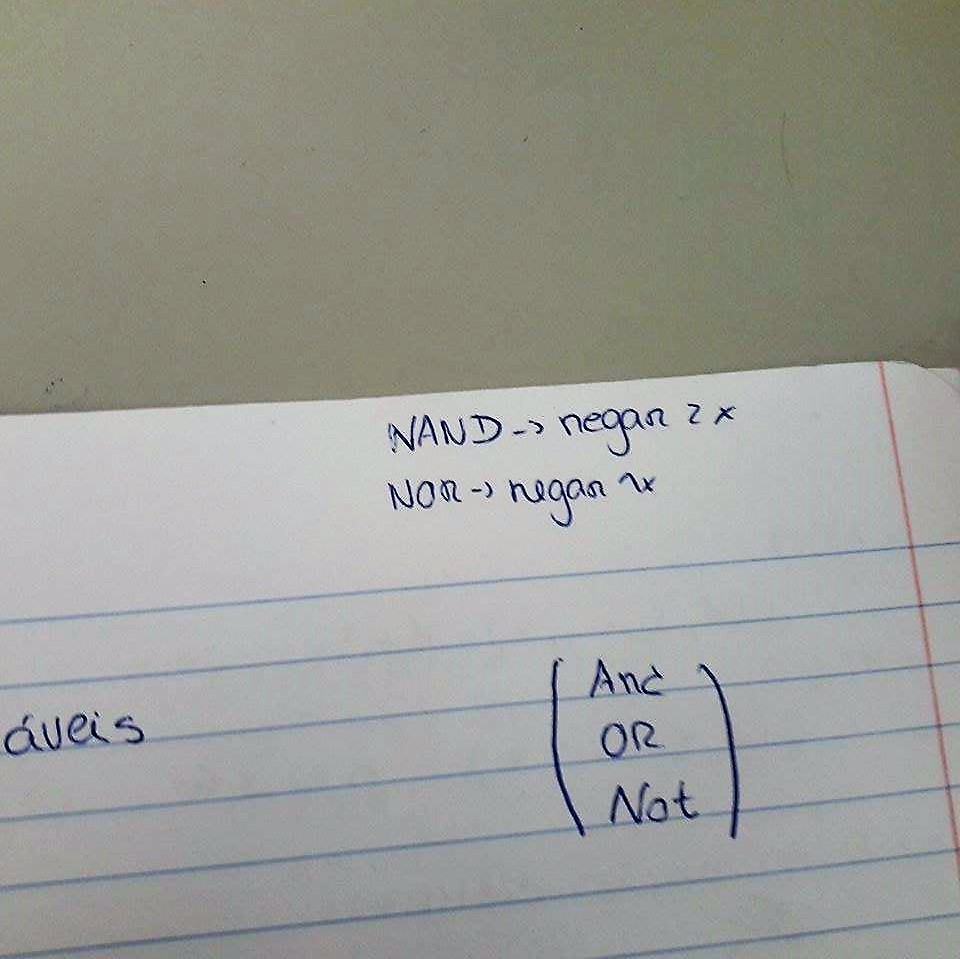 NAND -> negar 2x
NOR -> negar 1x
áveis
And
OR
Not